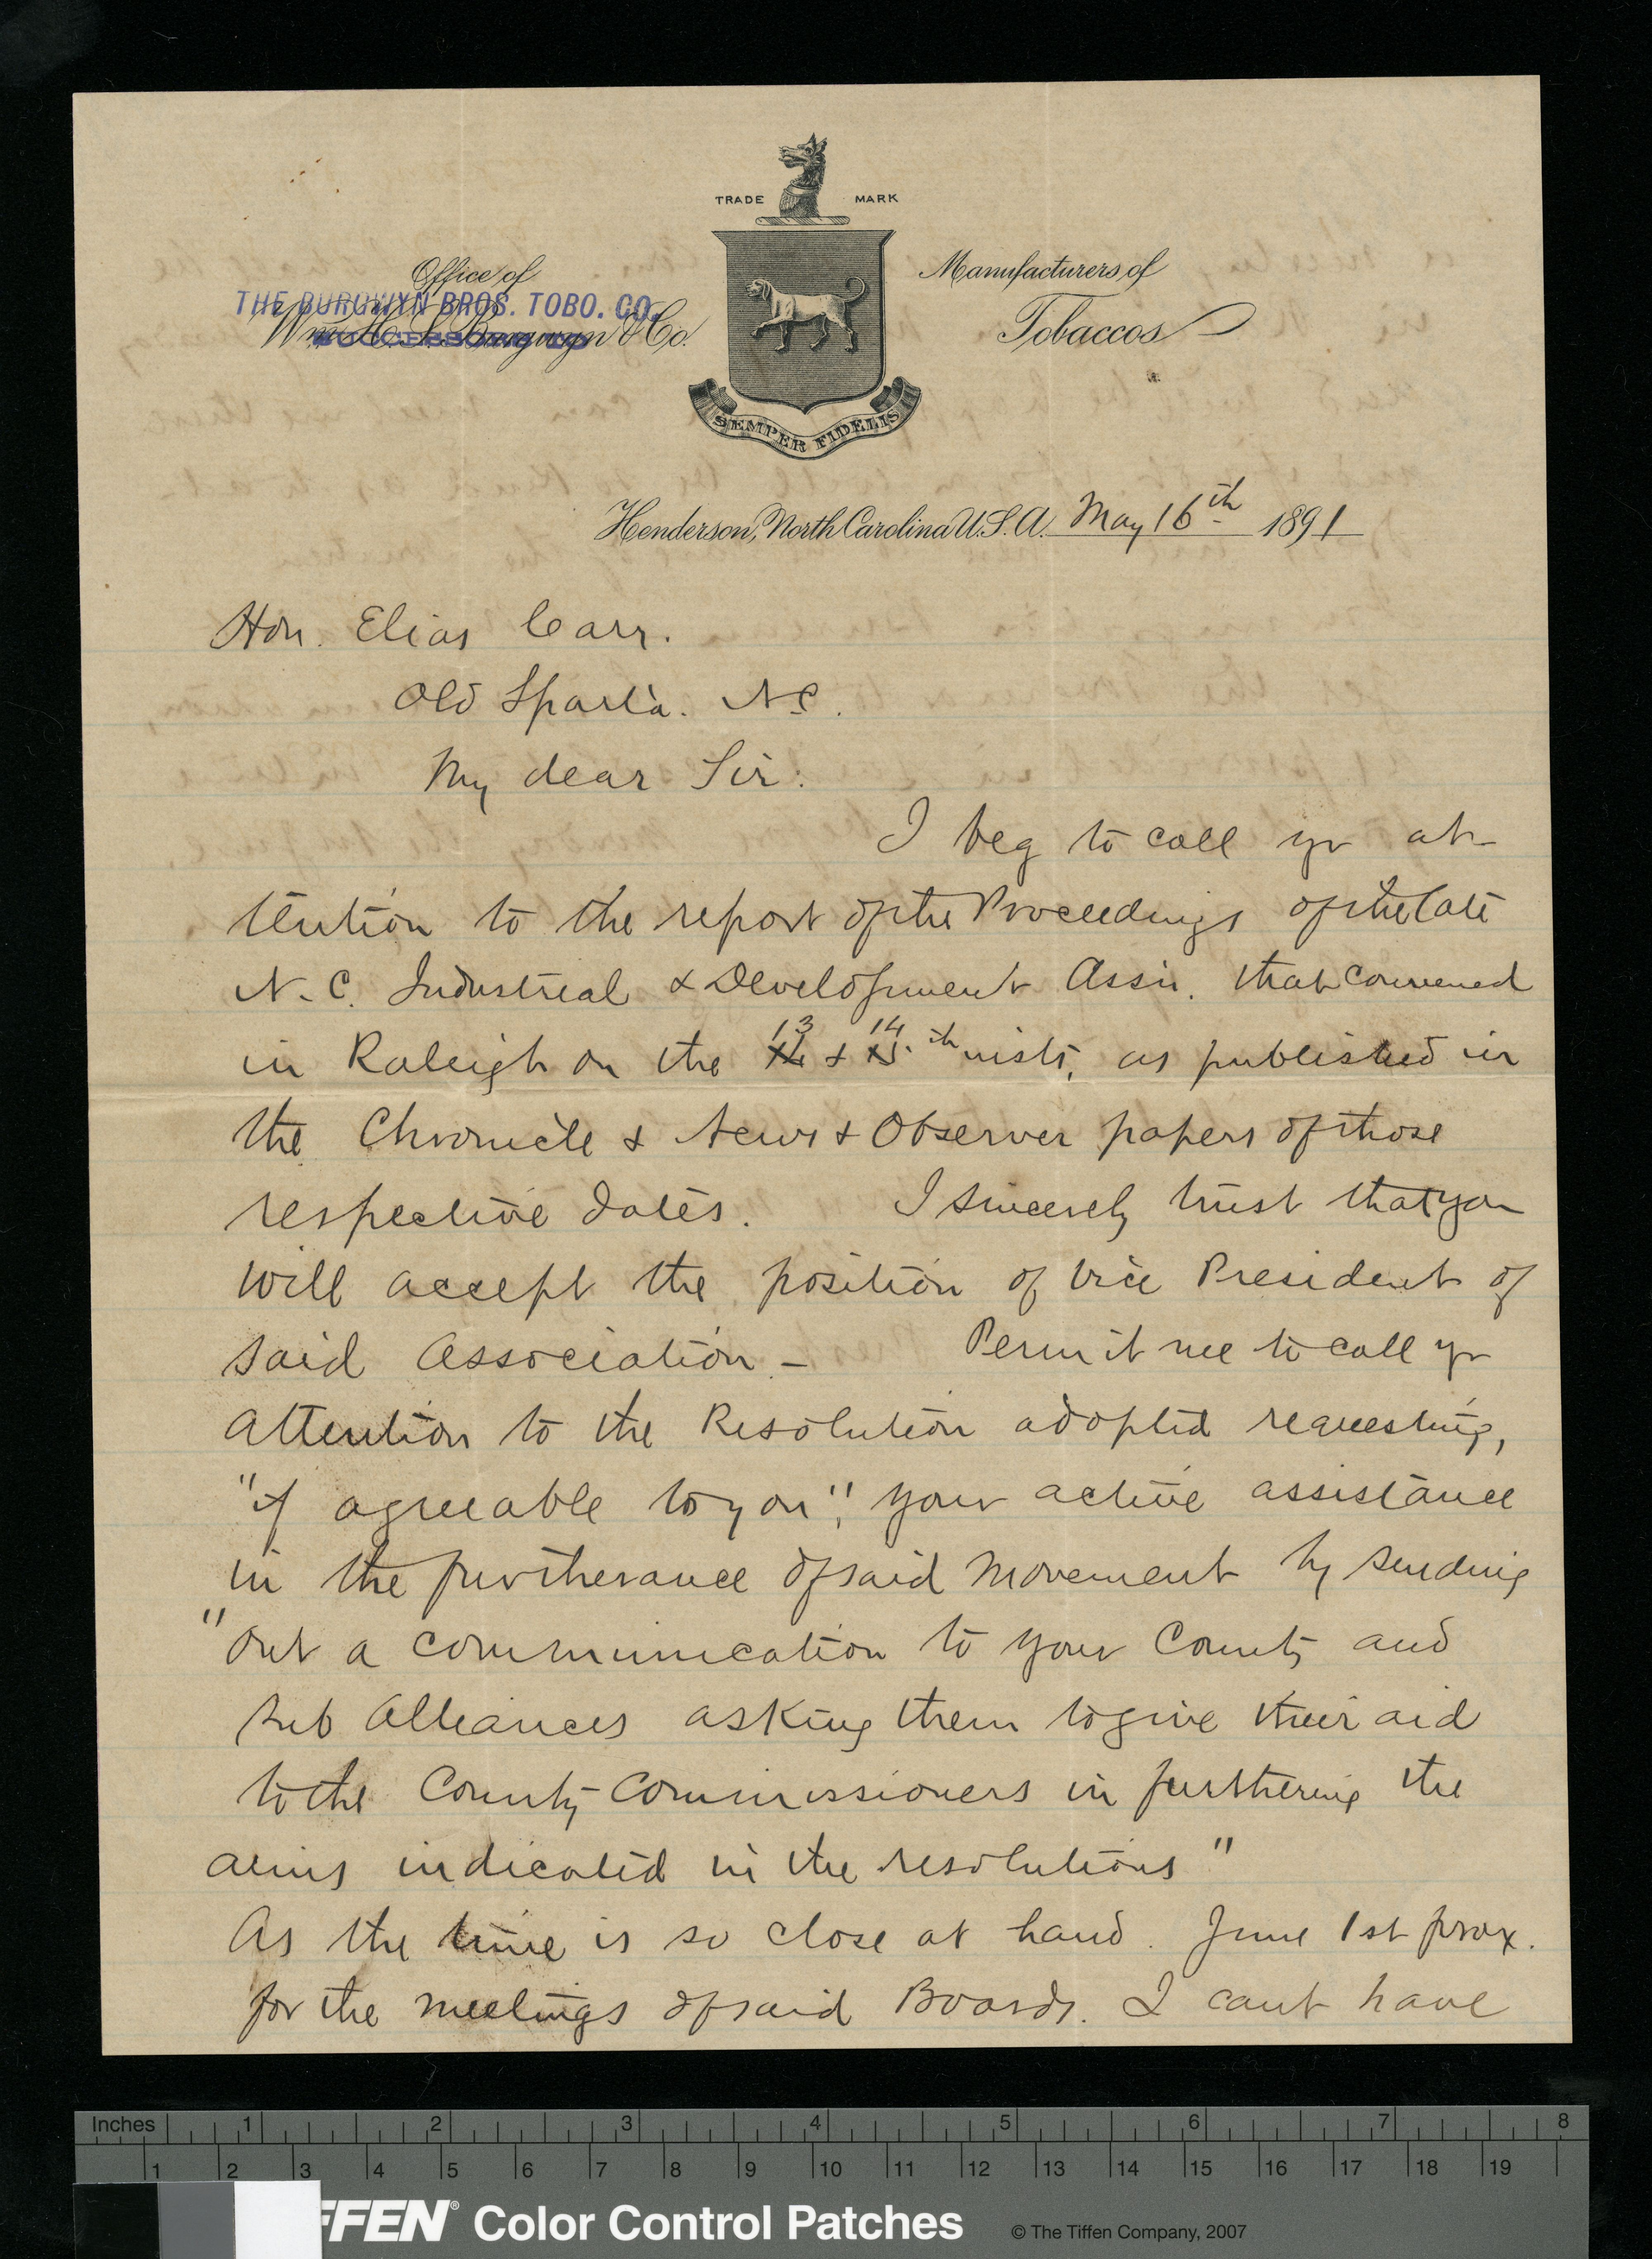 TRADE MARK
Office of
THE BURGWYN BROS. TOBO. CO.
SUCCESSORS TO
Wm. H. S. Burgwyn & Co.
Manufacturers of
Tobaccos
SEMPER FIDELIS
Henderson, North Carolina U.S.A. May 16th 1891
Hon. Elias Carr.
Old Sparta. N.C.
My dear Sir:
I beg to call yr at-
tention to the report of the Proceedings of the late
N.C. Industrial & Development Assn. that convened
in Raleigh on the 13 & 14th insts, as published in
the Chronicle & News & Observer papers of those
respective dates. I sincerely trust that you
will accept the position of Vice President of
said Association - Permit me to call yr
attention to the Resolution adopted requesting,
"if agreeable to you", your active assistance
in the furtherance of said movement by sending
"out a communication to your County and
Sub Alliances asking them to give their aid
to the County Commissioners in furthering the
aims indicated in the resolutions"
As the time is so close at hand. June 1st prox.
for the meetings of said Boards. I cant have
Inches 1 2 3 4 5 6 7 8
1 2 3 4 5 6 7 8 9 10 11 12 13 14 15 16 17 18 19
FFEN® Color Control Patches © The Tiffen Company, 2007